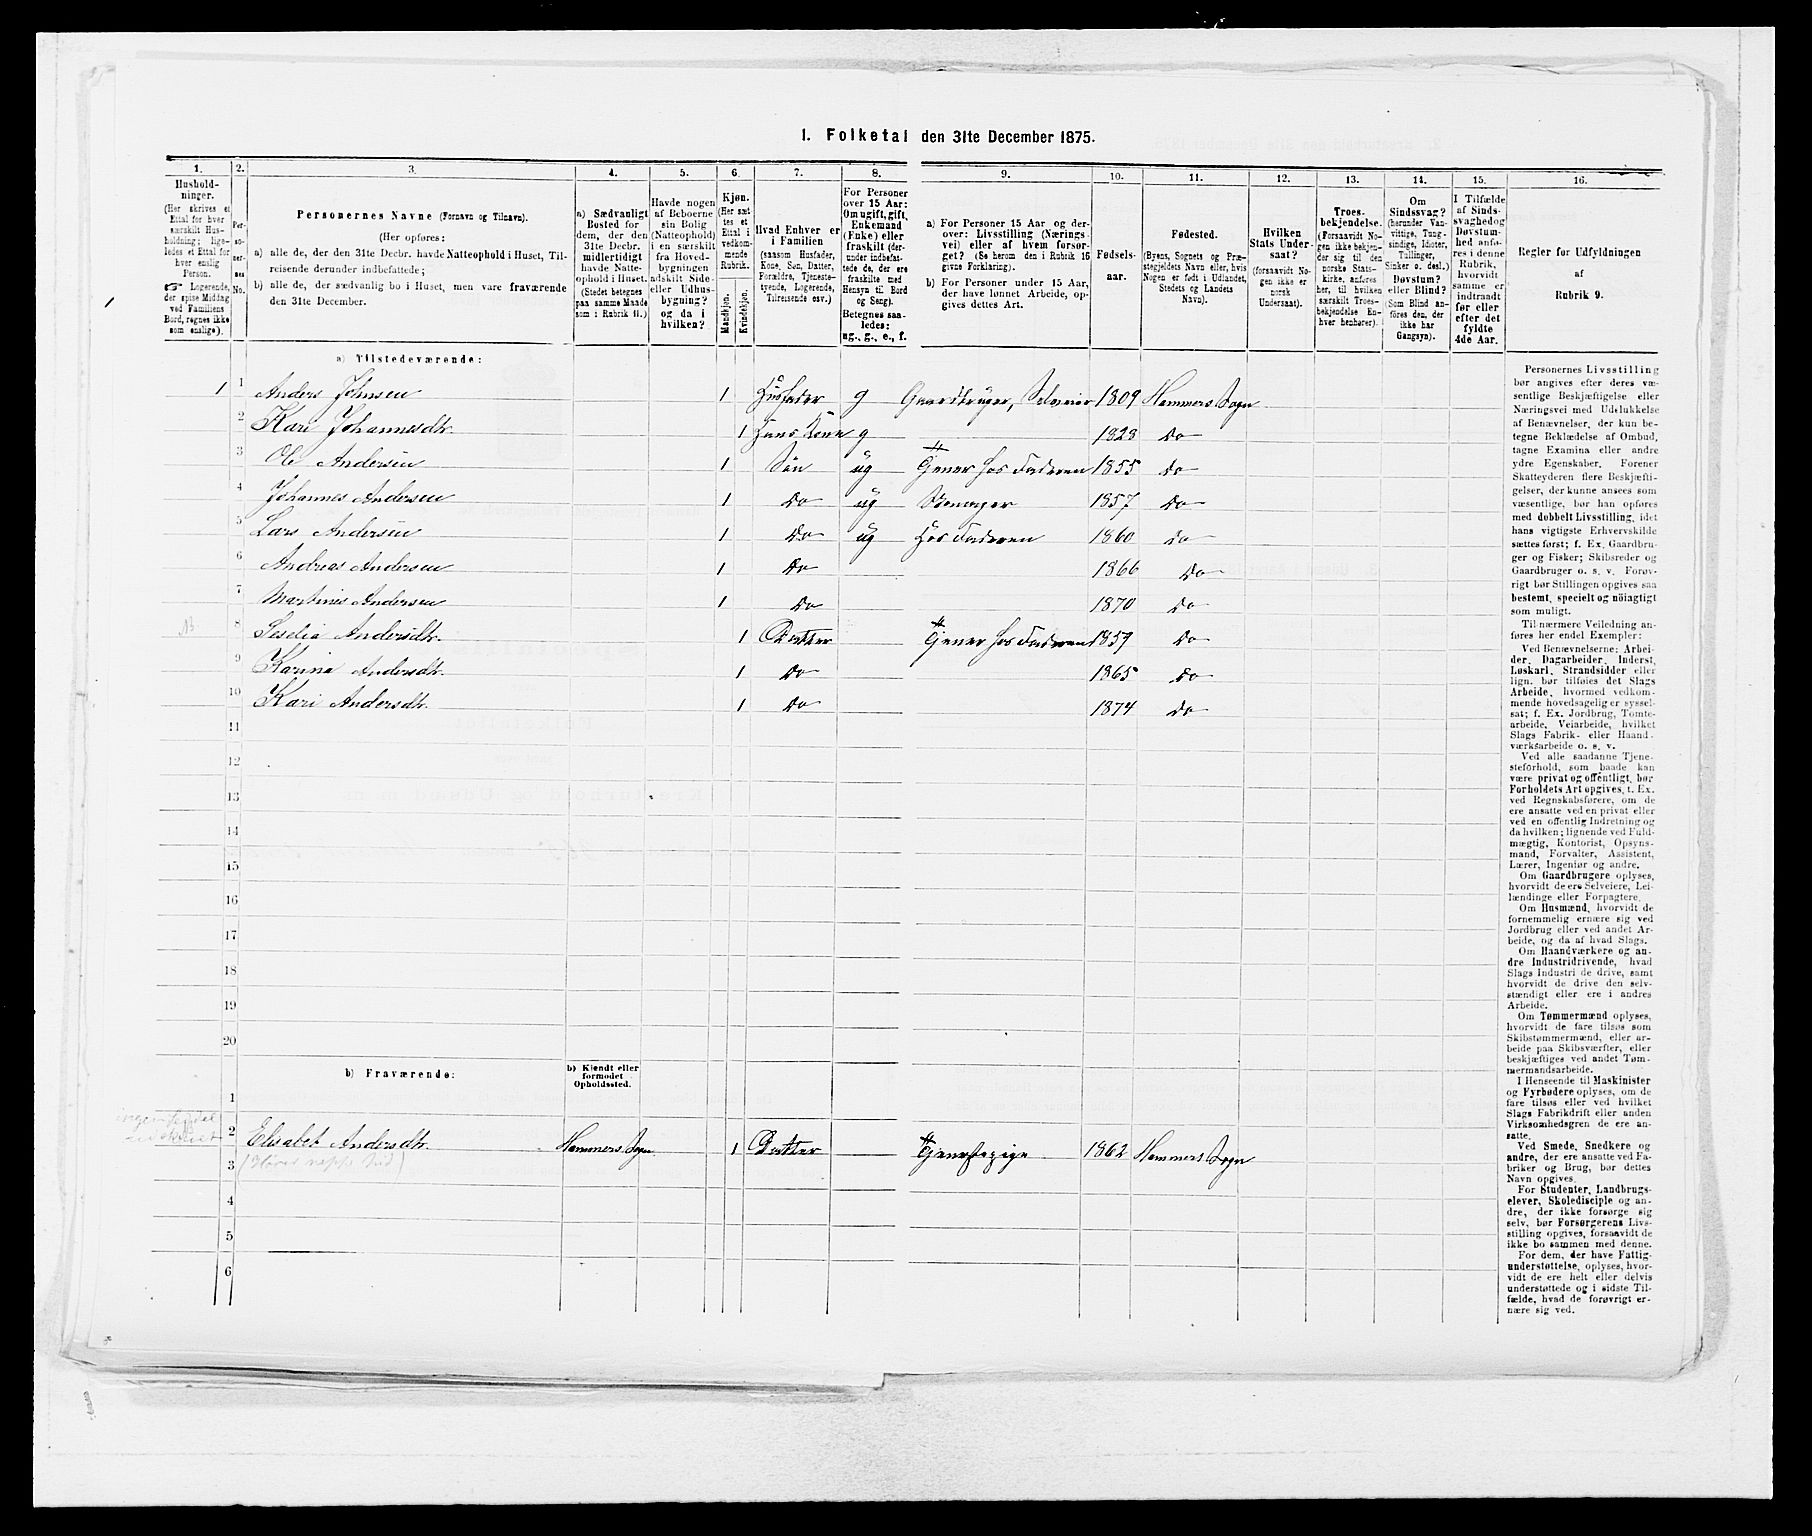 1. Folketal den 31te December 1875.
1. 2. 3. 4. 5. 6. 7. 8. 9. 10. 11. 12. 13. 14. 15. 16.
Hushold-
ninger.
(Her skrives et
Ettal for hver
særskilt Hus-
holdning; lige-
ledes et Ettal for
hver enslig
Person.
☞ Logerende,
der spise Middag
ved Familiens
Bord, regnes ikke
som enslige).
Per-
so-
ner-
nes
No.
Personernes Navne (Fornavn og Tilnavn).
(Her opføres:
a) alle de, der den 31te Decbr. havde Natteophold i Huset, Til-
reisende derunder indbefattede;
b) alle de, der sædvanlig bo i Huset, men vare fraværende
den 31te December.
a) Sædvanligt
Bosted for
dem, der den
31te Decbr.
midlertidigt
havde Natte-
ophold i Huset.
(Stedet betegnes
paa samme Maade
som i Rubrik 11.)
Havde nogen
af Beboerne
sin Bolig
(Natteophold)
i en særskilt
fra Hoved-
bygningen
adskilt Side-
eller Udhus-
bygning?
og da i
hvilken?
Kjøn.
(Her sæt-
tes et
Ettal i
vedkom-
mende
Rubrik.
Mandkjøn.
Kvindekjøn.
Hvad Enhver er
i Familien
(saasom Husfader,
Kone, Søn, Datter,
Forældre, Tjeneste-
tyende, Logerende,
Tilreisende osv.)
For Personer
over 15 Aar:
Om ugift, gift,
Enkemand
(Enke) eller
fraskilt (der-
under indbefat-
tede de, der ere
fraskilte med
Hensyn til Bord
og Seng).
Betegnes saa-
ledes:
ug., g., e., f.
a) For Personer 15 Aar og der-
over: Livsstilling (Nærings-
vei) eller af hvem forsør-
get? (Se herom den i Rubrik 16
givne Forklaring).
b) For Personer under 15 Aar,
der have lønnet Arbeide, op-
gives dettes Art.
Fødsels-
aar.
Fødested.
(Byens, Sognets og Præ-
stegjeldets Navn eller, hvis
Nogen er født i Udlandet,
Stedets og Landets
Navn).
Hvilken
Stats Under-
saat?
(forsaavidt No-
gen ikke er
norsk
Undersaat).
Troes-
bekjendelse.
(Forsaavidt No-
gen ikke bekjen-
der sig til den
norske Stats-
kirke, anføres
her, til hvilken
særskilt Troes-
bekjendelse En-
hver henhører).
Om
Sindssvag?
(herunder Van-
vittige, Tung-
sindige, Idioter,
Tullinger,
Sinker o. desl.)
Døvstum?
eller Blind?
(Som Blind an-
føres den, der
ikke har
Gangsyn).
I Tilfælde
af Sinds-
svaghed og
Døvstum-
hed anfø-
res i denne
Rubrik,
hvorvidt
samme er
indtraadt
før eller
efter det
fyldte
4de Aar.
Regler for Udfyldningen
af
Rubrik 9.
a) Tilstedeværende:
1 1 Anders Johnsen 1 Husfader g Gaardbruger, Selveier 1809 Hammers Sogn
2 Kari Johannesdtr. 1 Hans Kone g 1828 Do
3 Ole Andersen 1 Søn ug Tjener hos Faderen 1855 Do
4 Johannes Andersen 1 Do ug 1857 Do
5 Lars Andersen 1 Do ug Hos Faderen 1860 Do
6 Andreas Andersen 1 Do 1866 Do
7 Martines Andersen 1 Do 1870 Do
8 Seselia Andersdtr. 1 Datter Tjener hos Faderen 1859 Do
9 Karina Andersdtr. 1 Do 1865 Do
10 Kari Andersdtr. 1 Do 1874 Do
11
12
13
14
15
16
17
18
19
20
b) Fraværende:
b) Kjendt eller
formodet
Opholdssted.
1
2 Elisabet Andersdtr. Hammers Sogn 1 Datter Tjenestepige 1862 Hammers Sogn
3
4
5
6
Personernes Livsstilling
bør angives efter deres væ-
sentlige Beskjæftigelse eller
Næringsvei med Udelukkelse
af Benævnelser, der kun be-
tegne Beklædelse af Ombud,
tagne Examina eller andre
ydre Egenskaber. Forener
Skatteyderen flere Beskjæfti-
gelser, der kunne ansees som
væsentlige, bør han opføres
med dobbelt Livsstilling, idet
hans vigtigste Erhvervskilde
sættes først; f. Ex. Gaardbru-
ger og Fisker; Skibsreder og
Gaardbruger o. s. v. Forøv-
rigt bør Stillingen opgives saa
bestemt, specielt og nöiagtigt
som muligt.
Til nærmere Veiledning an-
føres her endel Exempler:
Ved Benævnelserne: Arbei-
der, Dagarbeider, Inderst,
Løskarl, Strandsidder eller
lign. bør tilføies det Slags
Arbeide, hvormed vedkom-
mende hovedsagelig er syssel-
sat; f. Ex. Jordbrug, Tomte-
arbeide, Veiarbeide, hvilket
Slags Fabrik- eller Haand-
værksarbeide o. s. v.
Ved alle saadanne Tjene-
steforhold, som baade kan
være privat og offentligt, bør
Forholdets Art opgives, t. Ex.
ved Regnskabsførere, om de
ere ansatte ved en privat eller
ved en offentlig Indretning og
da hvilken; lignende ved Fuld-
mægtig, Kontorist, Opsyns-
mand, Forvalter, Assistent,
Lærer, Ingeniør og andre.
Om Gaardbrugere oplyses,
hvorvidt de ere Selveiere, Lei-
lændinge eller Forpagtere.
Om Husmænd, hvorvidt de
fornemmelig ernære sig ved
Jordbrug eller ved andet Ar-
beide, og da af hvad Slags.
Om Haandværkere og an-
dre Industridrivende, hvad
Slags Industri de drive, samt
hvorvidt de drive den selv-
stændigt eller ere i andres
Arbeide.
Om Tømmermænd oplyses,
hvorvidt de fare tilsøs som
Skibstømmermænd, eller ar-
beide paa Skibsværfter, eller
beskjæftiges ved andet Tøm-
mermandsarbeide.
I Henseende til Maskinister
og Fyrbødere oplyses, om de
fare tilsøs eller ved hvilket
Slags Fabrikdrift eller anden
Virksomhedsgren de ere an-
satte.
Ved Smede, Snedkere og
andre, der ere ansatte ved Fa-
briker og Brug, bør dettes
Navn opgives.
For Studenter, Landbrugs-
elever, Skoledisciple og an-
dre, der ikke forsørge sig
selv, bør Forsørgerens Livs-
stilling opgives, forsaavidt de
ikke bo sammen med denne.
For dem, der have Fattig-
understøttelse, oplyses, hvor-
vidt de ere helt eller delvis
understøttede og i sidste Til-
fælde, hvad de forøvrigt er-
nære sig ved.